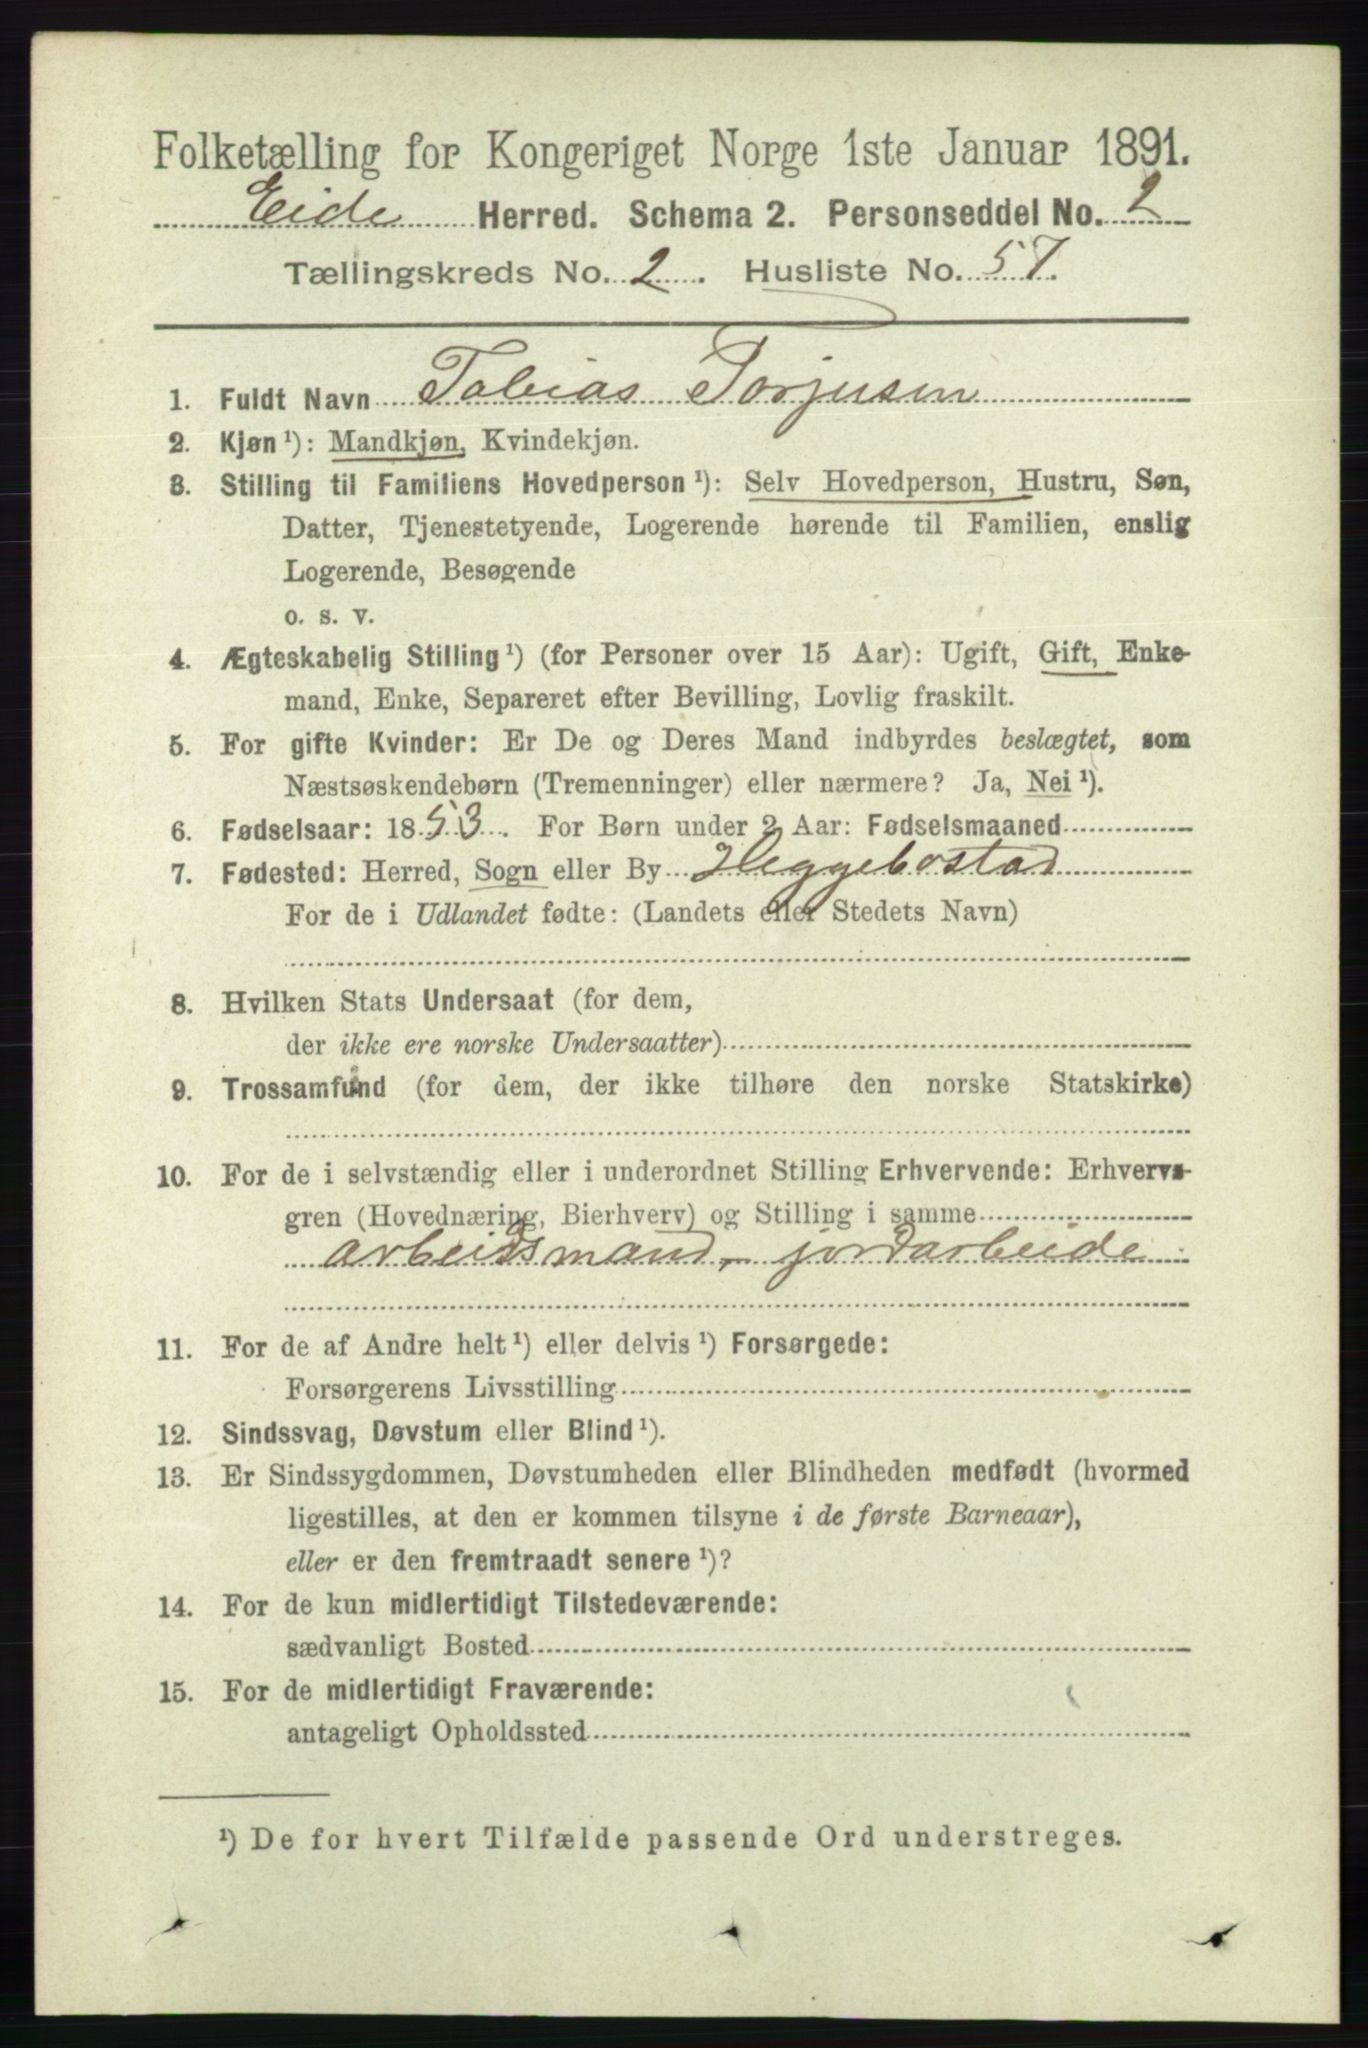 Folketælling for Kongeriget Norge 1ste Januar 1891.
Eide Herred. Schema 2. Personseddel No. 2
Tællingskreds No. 2. Husliste No. 57.
1. Fuldt Navn Tobias Torjusen
2. Kjøn ¹): Mandkjøn, Kvindekjøn.
3. Stilling til Familiens Hovedperson ¹): Selv Hovedperson, Hustru, Søn,
Datter, Tjenestetyende, Logerende hørende til Familien, enslig
Logerende, Besøgende
o. s. v.
4. Ægteskabelig Stilling ¹) (for Personer over 15 Aar): Ugift, Gift, Enke-
mand, Enke, Separeret efter Bevilling, Lovlig fraskilt.
5. For gifte Kvinder: Er De og Deres Mand indbyrdes beslægtet, som
Næstsøskendebørn (Tremenninger) eller nærmere? Ja, Nei ¹).
6. Fødselsaar: 1853. For Børn under 2 Aar: Fødselsmaaned
7. Fødested: Herred, Sogn eller By Heggebostad
For de i Udlandet fødte: (Landets eller Stedets Navn)
8. Hvilken Stats Undersaat (for dem,
der ikke ere norske Undersaatter)
9. Trossamfund (for dem, der ikke tilhøre den norske Statskirke)
10. For de i selvstændig eller i underordnet Stilling Erhvervende: Erhvervs-
gren (Hovednæring, Bierhverv) og Stilling i samme
arbeidsmand, jordarbeide
11. For de af Andre helt ¹) eller delvis ¹) Forsørgede:
Forsørgerens Livsstilling
12. Sindssvag, Døvstum eller Blind ¹).
13. Er Sindssygdommen, Døvstumheden eller Blindheden medfødt (hvormed
ligestilles, at den er kommen tilsyne i de første Barneaar),
eller er den fremtraadt senere ¹)?
14. For de kun midlertidigt Tilstedeværende:
sædvanligt Bosted
15. For de midlertidigt Fraværende:
antageligt Opholdssted
¹) De for hvert Tilfælde passende Ord understreges.